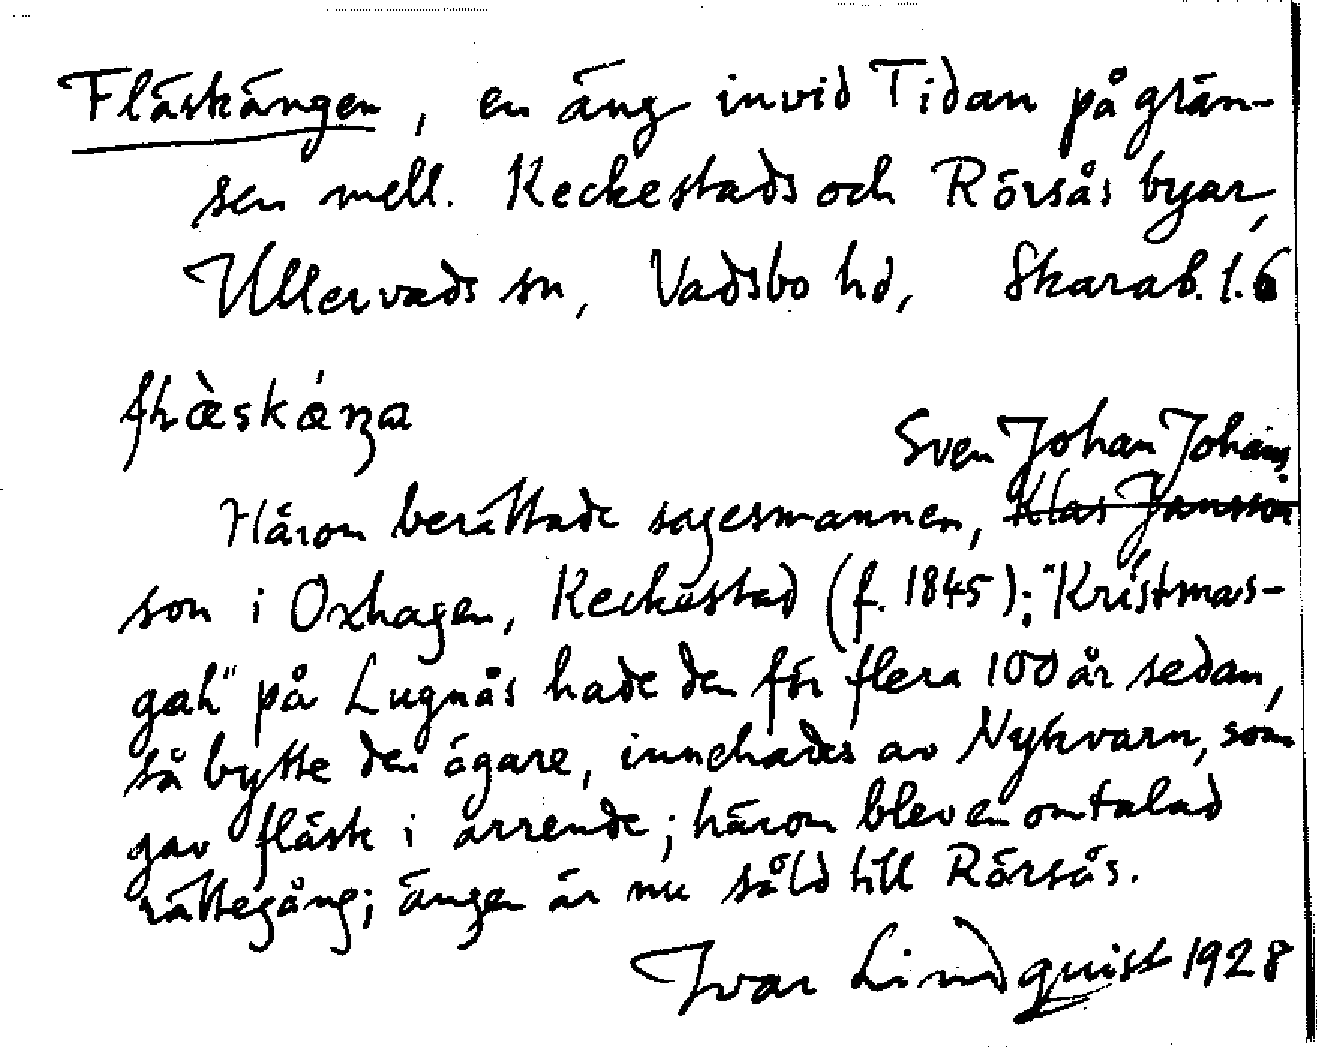 Fläskängen, en äng invid Tidan på grän-
sen mell. Keckestads och Rörsås byar,
Ullervads sn, Vadsbo hd, Skarab. l. 6
Sven Johan Johans
Härom berättade sagesmannen, Klas Jansson
son i Oxhagen, Keckestad (f. 1845): "Kristmas-
gah" på Lugnås hade den för flera 100 år sedan,
så bytte den ägare, innehades av Nykvarn, som
gav fläsk i arrende; härom blev en omtalad
rättegång; ängen är nu såld till Rörsås.
Ivar Lindquist 1928